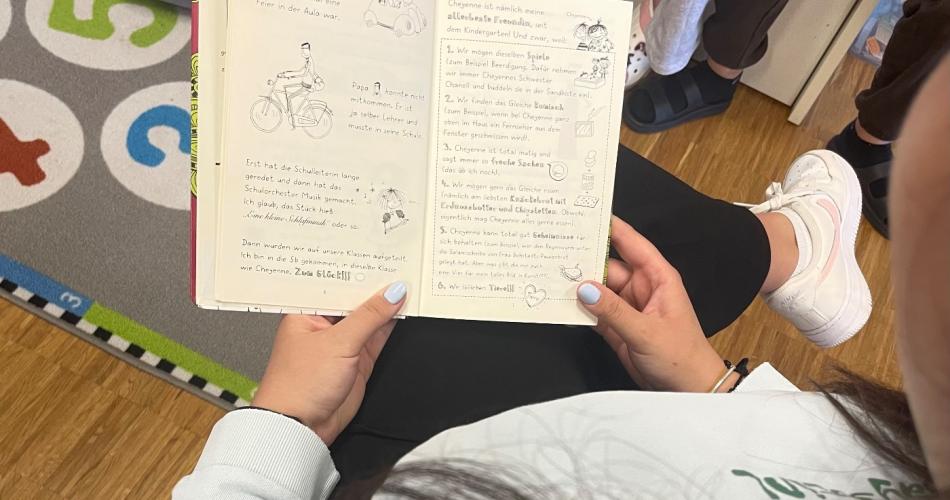 feier in der Aula war.
Papa konnte nicht
mitkommen. Er ist
ja selber Lehrer und
musste in seine Schule.
Erst hat die Schulleiterin lange
geredet und dann hat das
Schulorchester Musik gemacht.
Ich glaub, das Stück hieß
„Eine kleine Schlafmusik" oder so.
Dann wurden wir auf unsere Klassen aufgeteilt.
Ich bin in die 5b gekommen, in dieselbe Klasse
wie Cheyenne. Zum Glück!!!
Cheyenne ist nämlich meine
allerbeste Freundin, seit
dem Kindergarten! Und zwar, weil:
Cheyenne
1. Wir mögen dieselben Spiele
(zum Beispiel Beerdigung. Dafür nehmen
wir immer Cheyennes Schwester
Chanell und buddeln sie in der Sandkiste ein).
2. Wir finden das Gleiche komisch
(zum Beispiel, wenn bei Cheyenne ganz
oben im Haus ein Fernseher aus dem
Fenster geschmissen wird).
3. Cheyenne ist total mutig und
sagt immer so freche Sachen
(das üb ich noch).
4. Wir mögen gern das Gleiche essen
(nämlich am liebsten Knäckebrot mit
Erdnussbutter und Chipsletten. Obwohl,
eigentlich mag Cheyenne alles gerne essen).
5. Cheyenne kann total gut Geheimnisse für
sich behalten (zum Beispiel, wer den Regenwurm unter
die Salamischeibe von Frau
gelegt hat. Aber was gibt die mir auch
eine Vier für mein tolles Bild in Kunst
6. Wir lieben Tiere!!!
5
3